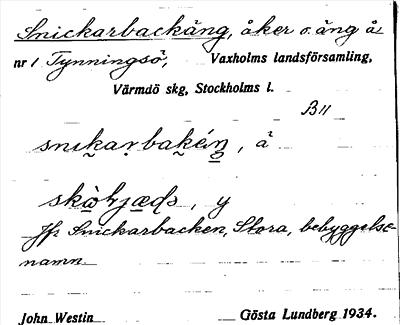 Snickarbackäng, åker o. äng å
nr 1 Tynningsö, Vaxholms landsförsamling,
Värmdö skg, Stockholms l.
B11
å
y
Jfr Snickarbacken, Stora, bebyggelse-
namn.
John Westin Gösta Lundberg 1934.